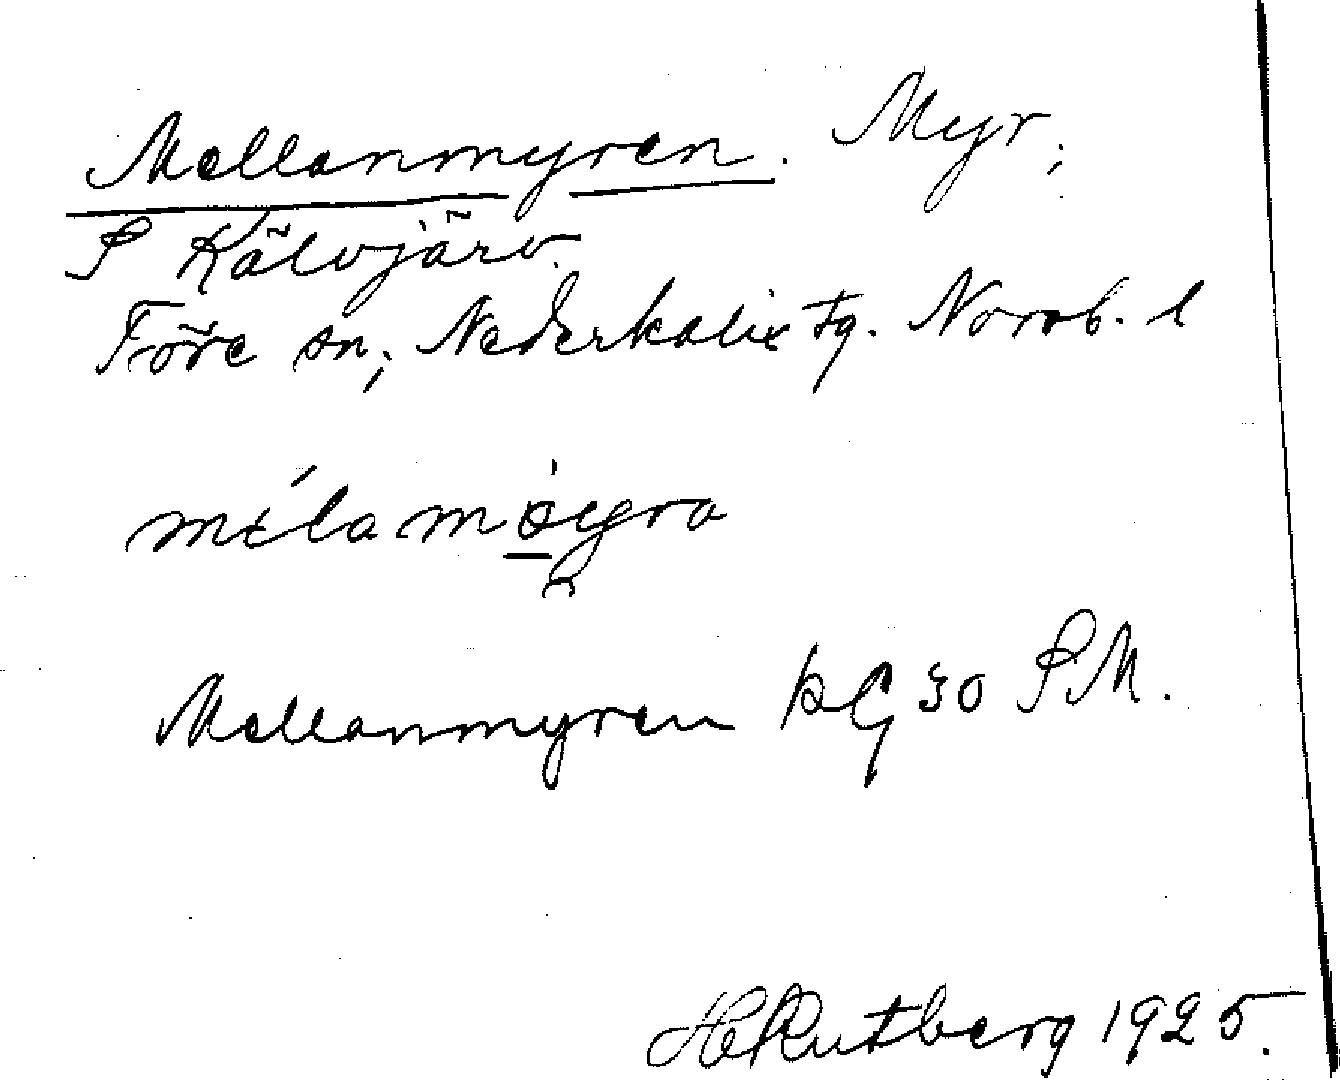 Mellanmyren. Myr;
S Kälvjärv.
Töre sn; Nederkalix tg. Norrb. l
méla möyra
Mellanmyren på G 30 S.M.
H. Rutberg 1925.